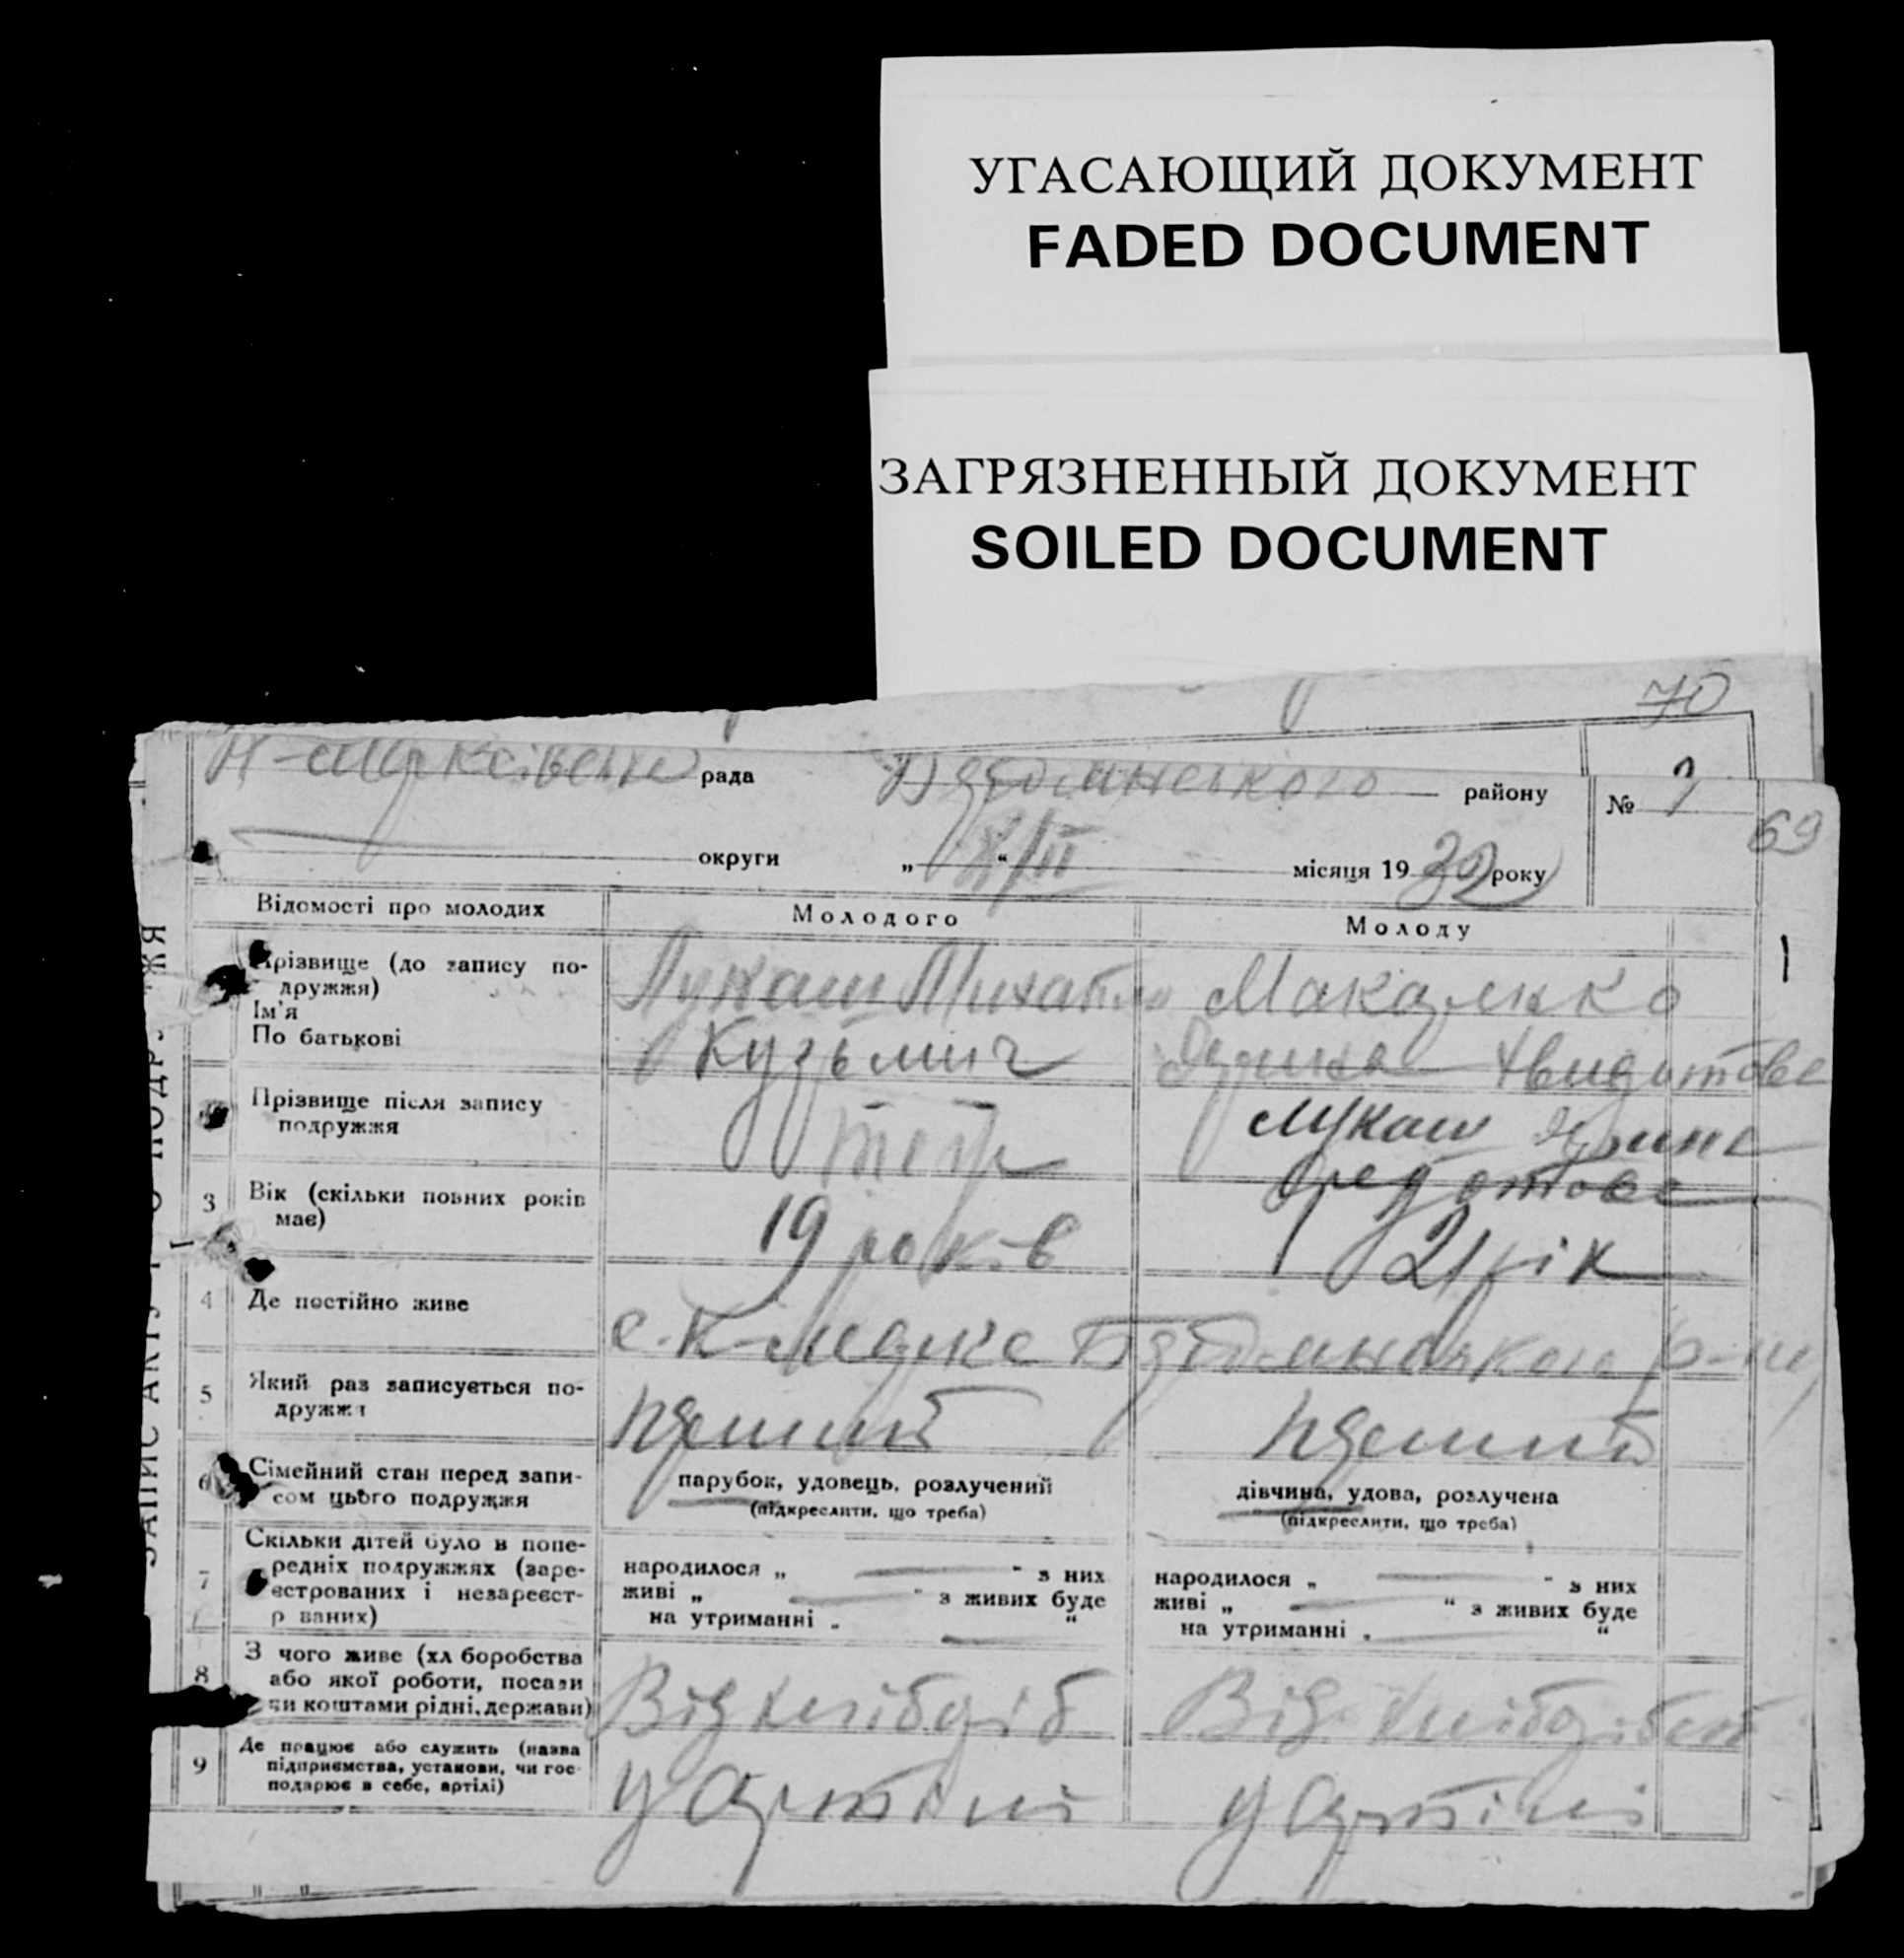 УГАСАЮЩИЙ ДОКУМЕНТ
FADED DOCUMENT
ЗАГРЯЗНЕННЫЙ ДОКУМЕНТ
SOILED DOCUMENT
70
рада району № 1
69
округи „ 8/II “ місяця 1932 року
Відомості про молодих Молодого Молоду
Прізвище (до запису по-
дружжя)
Ім'я
По батькові
Лукаш Михайло
Кузьмич
Макаренко
Прізвище після запису
подружжя
Лукаш
3 Вік (скільки повних років
має)
19 років
21 рік
4 Де постійно живе
с.
5 Який раз записується по-
дружжя
перший
перший
6 Сімейний стан перед запи-
сом цього подружжя
парубок, удовець, розлучений
(підкреслити, що треба)
дівчина, удова, розлучена
(підкреслити, що треба)
7 Скільки дітей було в попе-
редніх подружжях (заре-
єстрованих і незареєст-
р ваних)
народилося „ — " з них
живі „ — " з живих буде
на утриманні „ — "
народилося „ — " з них
живі „ — " з живих буде
на утриманні „ — "
8 З чого живе (хл боробства
або якої роботи, посади
чи коштами рідні, держави)
Від хлібороб
Від
9 Де працює або служить (назва
підприємства, установи, чи гос-
подарює в себе, артілі)
у Артілі
у Артілі